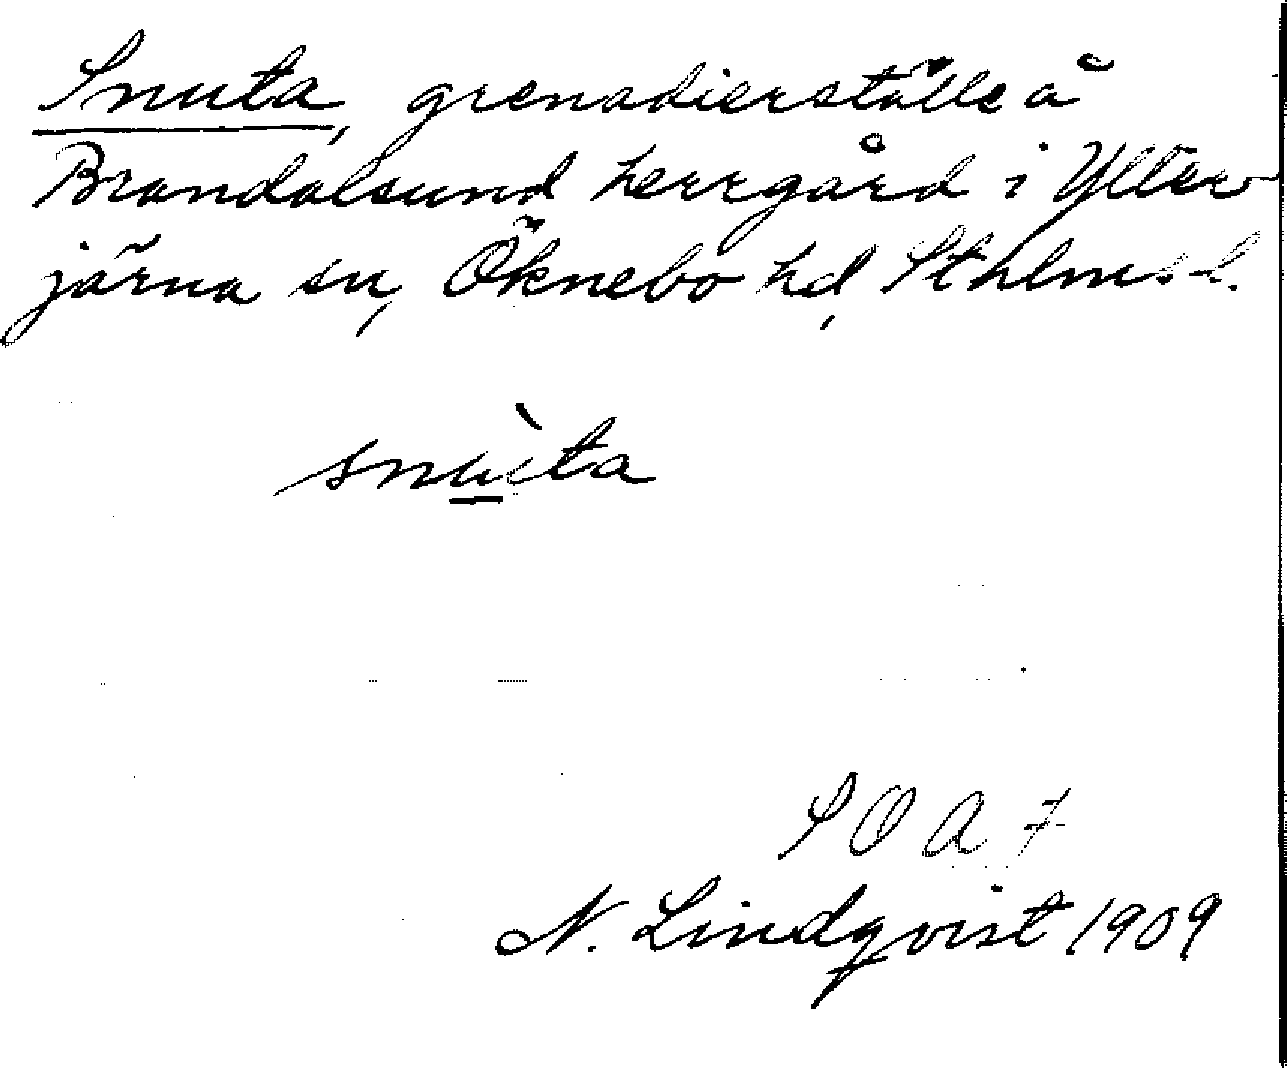 Snuta, grenadierställe å
Brandalsund herrgård i Ytter
järna sn, Öknebo hd, Sthlms l.
snùta
S O A 7
N. Lindqvist 1909